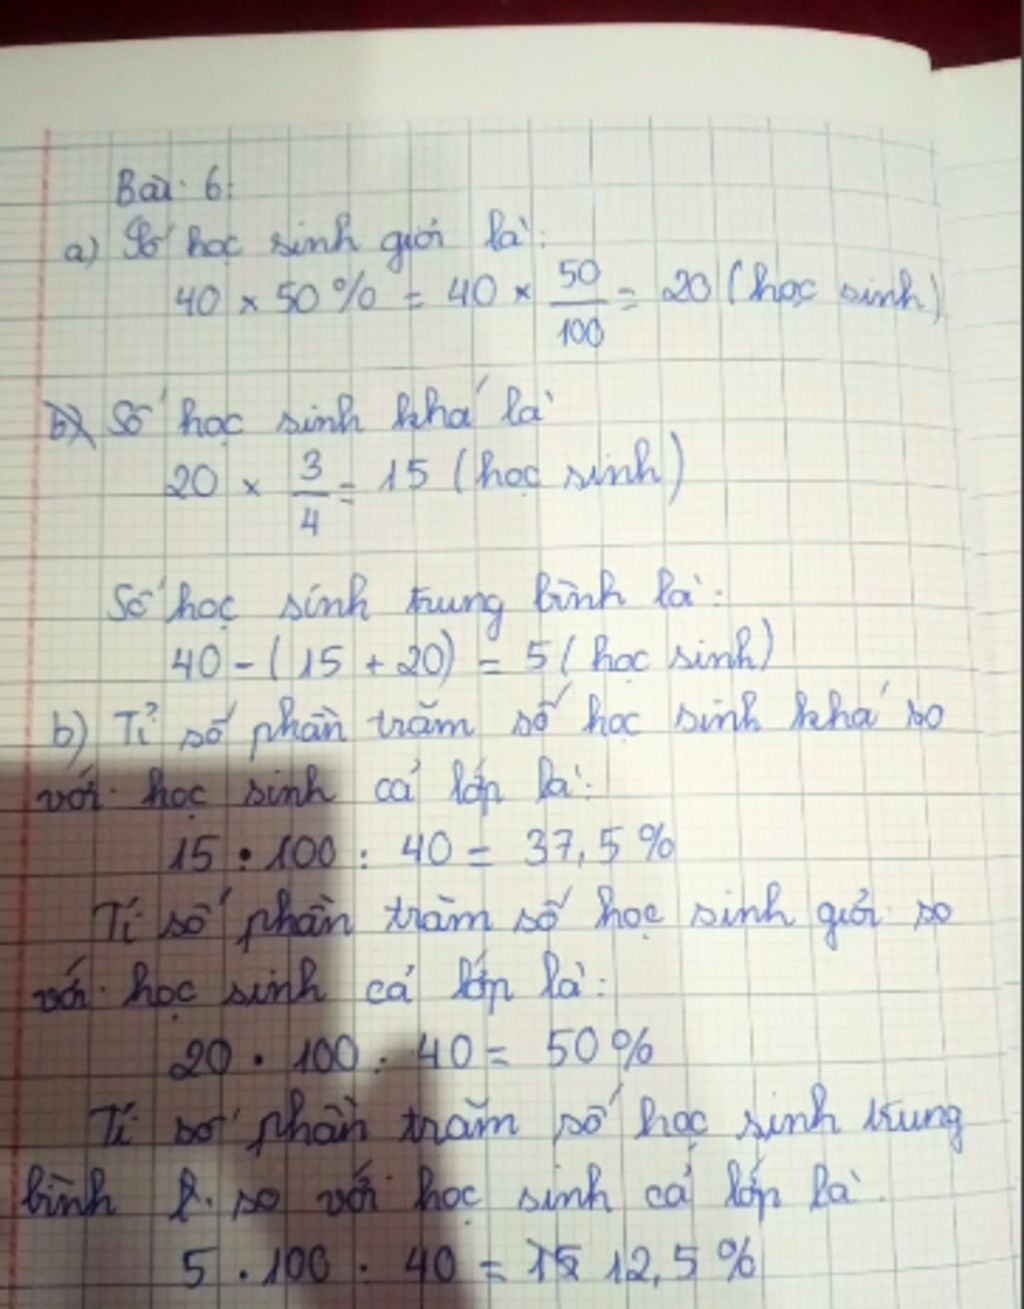 Bài 6:
a) Số học sinh giỏi là:
40 × 50% = 40 × 50/100 = 20 (học sinh)
Số học sinh khá là
20 × 3/4 = 15 (học sinh)
Số học sinh trung bình là:
40 - (15 + 20) = 5 (học sinh)
b) Tỉ số phần trăm số học sinh khá so
với học sinh cả lớp là:
15 . 100 : 40 = 37,5%
Tỉ số phần trăm số học sinh giỏi so
với học sinh cả lớp là:
20 . 100 : 40 = 50%
Tỉ số phần trăm số học sinh trung
bình so với học sinh cả lớp là
5 . 100 : 40 = 12,5%